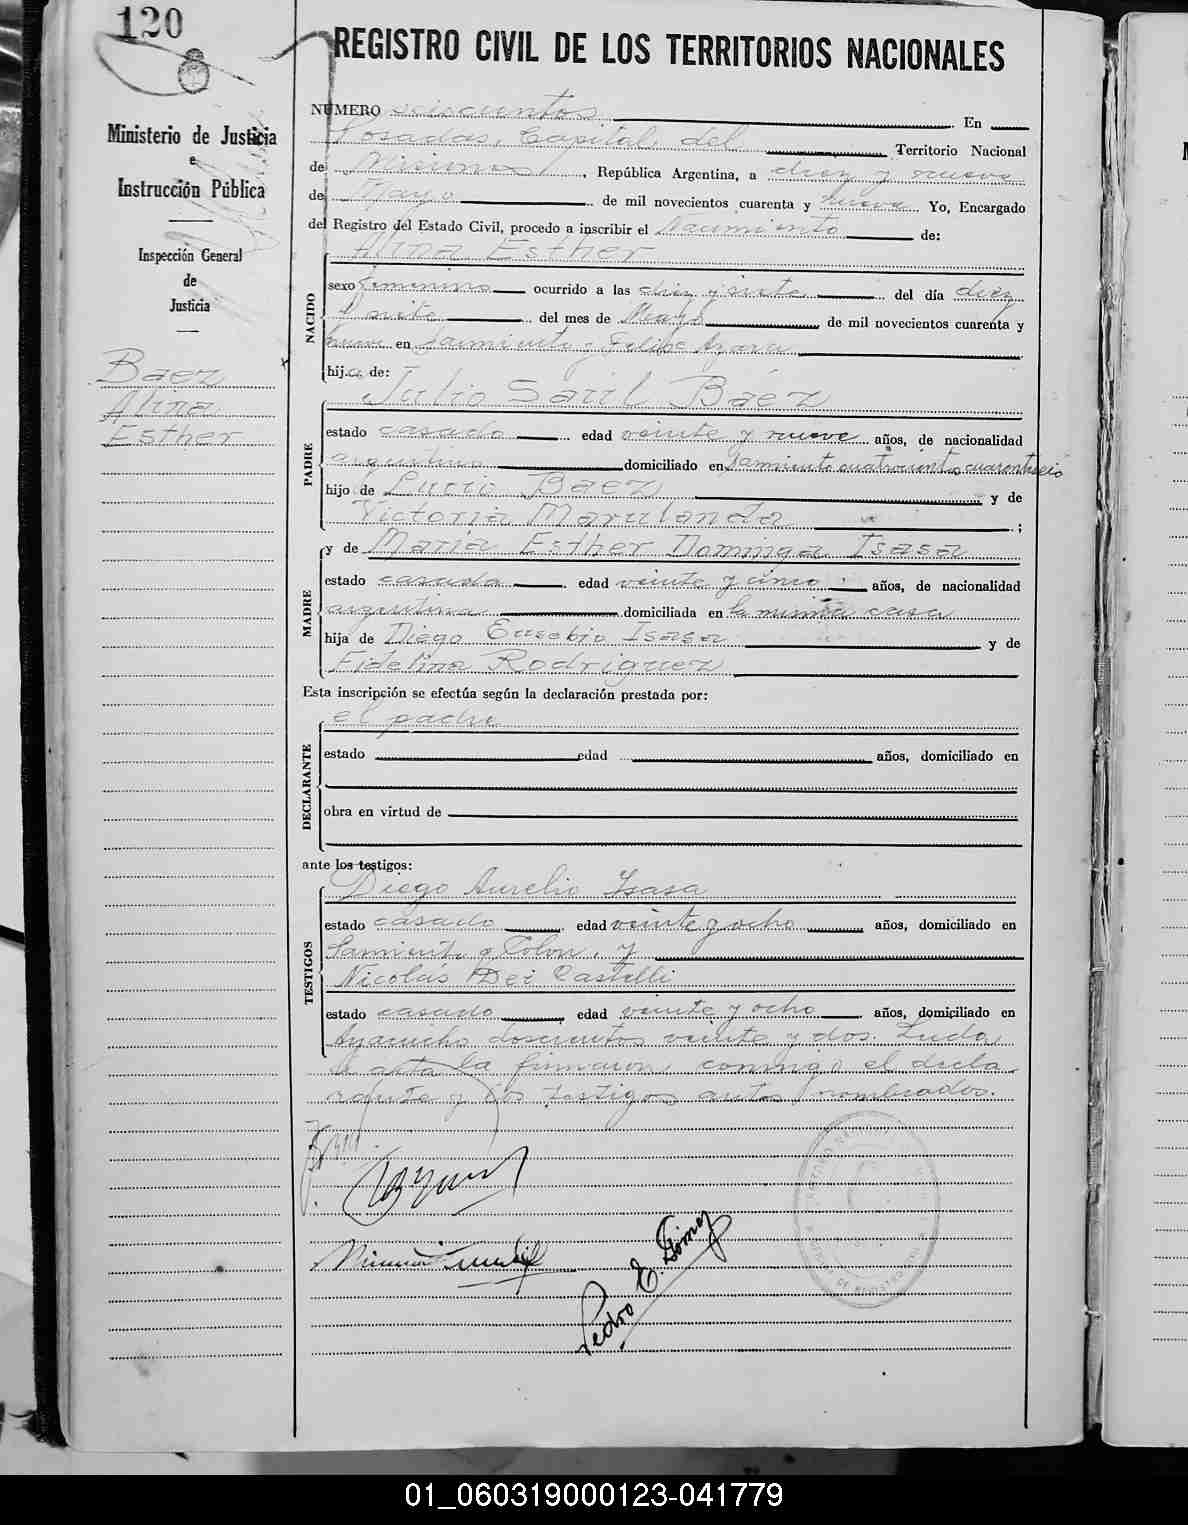 120
REGISTRO CIVIL DE LOS TERRITORIOS NACIONALES
Ministerio de Justicia
e
Instrucción Pública
Inspección General
de
Justicia
Baez
Alina
Esther
NÚMERO seiscientos. En
Posadas, Capital del Territorio Nacional
de Misiones, República Argentina, a diez y nueve
de Mayo de mil novecientos cuarenta y nueve Yo, Encargado
del Registro del Estado Civil, procedo a inscribir el Nacimiento de:
Alina Esther
NACIDO
sexo femenino ocurrido a las diez y siete del día diez
y siete del mes de Mayo de mil novecientos cuarenta y
nueve en Sarmiento y Felix Azara
hija de:
Julio Saúl Báez
PADRE
estado casado edad veinte y nueve años, de nacionalidad
argentina domiciliado en Sarmiento cuatrocientos cuarentiseis
hijo de Lucio Baez y de
Victoria Marulanda ;
MADRE
y de María Esther Dominga Isasa
estado casada edad veinte y cinco años, de nacionalidad
argentina domiciliada en la misma casa
hija de Diego Eusebio Isasa y de
Fidelina Rodriguez
Esta inscripción se efectúa según la declaración prestada por:
el padre
DECLARANTE
estado edad años, domiciliado en
obra en virtud de
ante los testigos:
Diego Aurelio Isasa
TESTIGOS
estado casado edad veinte y ocho años, domiciliado en
Sarmiento y Colon, y
Nicolás Dei Castelli
estado casado edad veinte y ocho años, domiciliado en
Ayacucho doscientos veinte y dos. Leida
el acta la firmaron conmigo el decla-
rante y los testigos antes nombrados.
Pedro E. Gómez
01_060319000123-041779